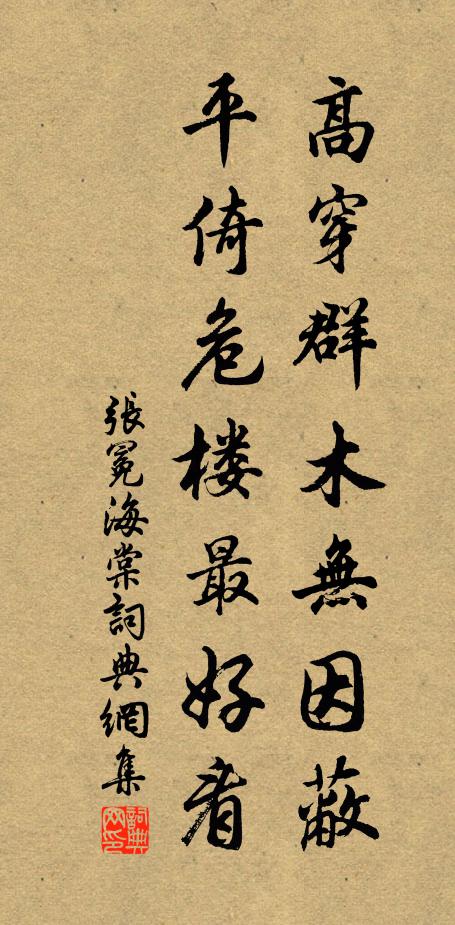 高穿群木無因蔽
平倚危楼最好看
張冕海棠詞典網集
詞典
网印